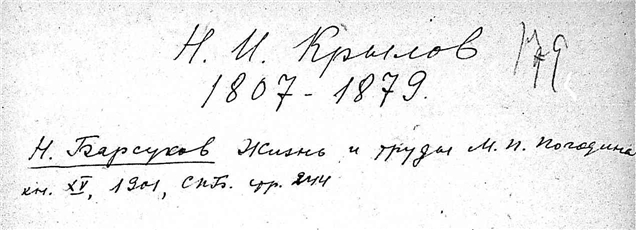 Н. И. Крылов
1807 - 1879.
Н. Барсуков Жизнь и труды М. П. Погодина
кн. XV, 1901, СПб. стр. 244